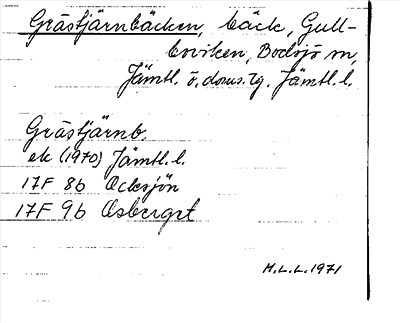 Gråstjärnbäcken, bäck, Gull-
boviken, Bodsjö sn,
Jämtl. ö. doms. tg. Jämtl. l.
Gråstjärnb.
ek (1970) Jämtl. l.
17F 8b Ocksjön
17F 9b Osberget
M.L.L. 1971